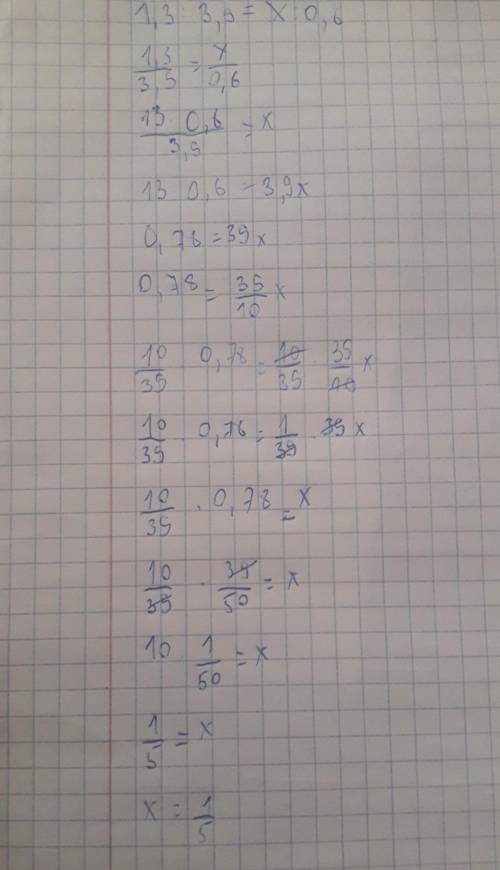 1,3 3,9 = x 0,6
1,3/3,9 = x/0,6
13 0,6/3,9 = x
13 0,6 = 3,9x
0,78 = 39x
0,78 = 39/10 x
10/39 0,78 = 10/39 39/10 x
10/39 · 0,78 = 1/39 · 39 x
10/39 · 0,78 = x
10/39 · 39/50 = x
10 1/50 = x
1/5 = x
x = 1/5